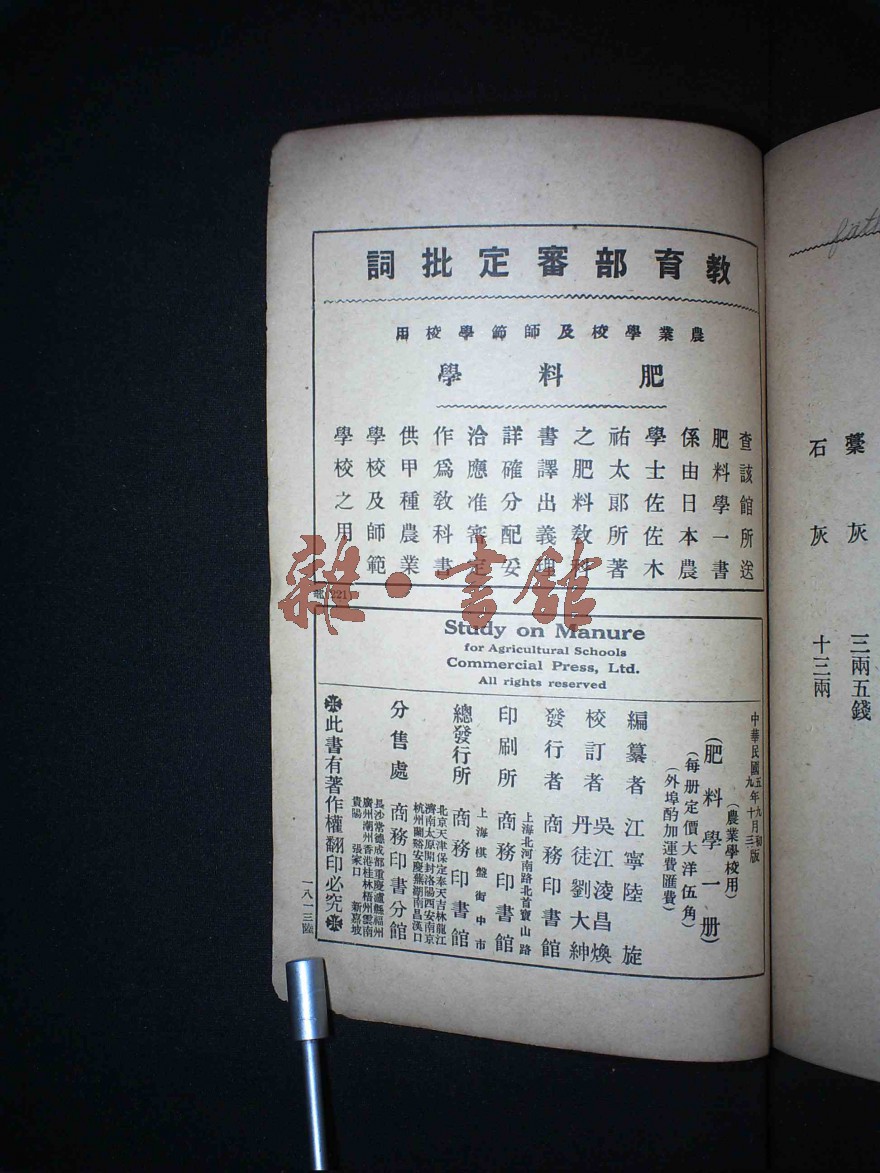 教育部審定批詞
農業學校及師範學校用
肥料學
查該館所送
肥料學一書
係由日本農
學士佐佐木
祐太郎所著
之肥料教科
書譯出義理
詳確分配妥
洽應准審定
作爲教科書
供甲種農業
學校及師範
學校之用
221
Study on Manure
for Agricultural Schools
Commercial Press, Ltd.
All rights reserved
中華民國五年九月初版
九年十三版
(農業學校用)
(肥料學一册)
(每册定價大洋伍角)
(外埠酌加運費匯費)
編纂者 江寧陸旋
校訂者 吳江淩昌煥
丹徒劉大紳
發行者 商務印書館
上海北河南路北首寶山路
印刷所 商務印書館
上海棋盤街中市
總發行所 商務印書館
北京天津保定奉天吉林龍江
濟南太原開封洛陽西安南京
杭州蘭谿安慶蕪湖南昌漢口
分售處 商務印書分館
長沙常德成都重慶瀘縣福州
廣州潮州香港桂林梧州雲南
貴陽 張家口 新嘉坡
此書有著作權翻印必究
一八一三陸
藁灰 三兩五錢
石灰 十三兩
雜·書館